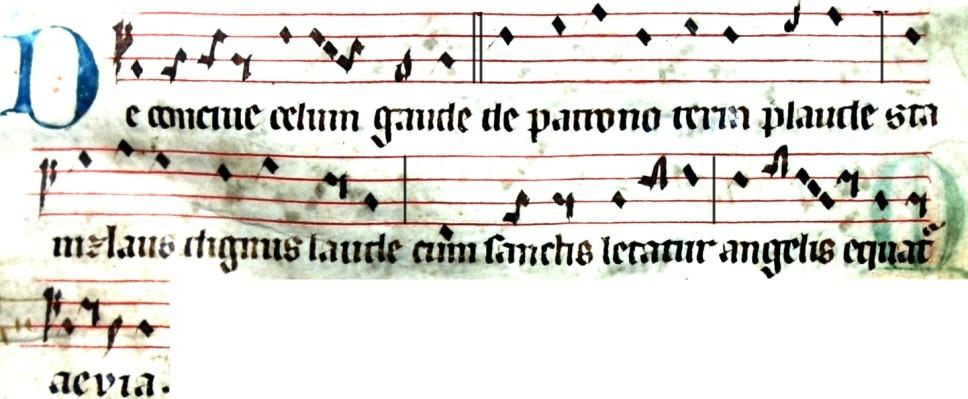 De conciue celum gaude de patrono terra plaude sta
nislaus dignus laude cum sanctis letatur angelis equat
aevia.